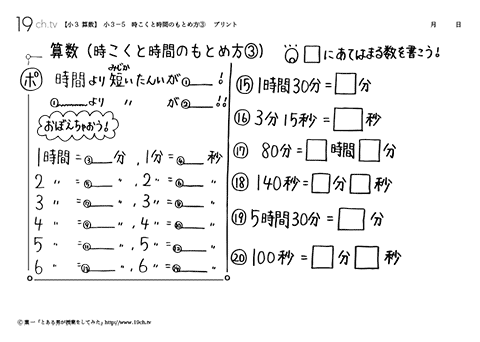 19ch.tv 【小3 算数】 小3-5 時こくと時間のもとめ方③ プリント 月 日
算数 (時こくと時間のもとめ方③)
□にあてはまる数を書こう!
ポ 時間より短いたんいが①____!
みじか
①____より 〃 が②____!!
おぼえちゃおう!
1時間=③____分,1分=④____秒
2 〃 =⑤____ 〃 ,2 〃 =⑥____ 〃
3 〃 =⑦____ 〃 ,3 〃 =⑧____ 〃
4 〃 =⑨____ 〃 ,4 〃 =⑩____ 〃
5 〃 =⑪____ 〃 ,5 〃 =⑫____ 〃
6 〃 =⑬____ 〃 ,6 〃 =⑭____ 〃
⑮ 1時間30分=□分
⑯ 3分15秒=□秒
⑰ 80分=□時間□分
⑱ 140秒=□分□秒
⑲ 5時間30分=□分
⑳ 100秒=□分□秒
© 葉一「とある男が授業をしてみた」http://www.19ch.tv